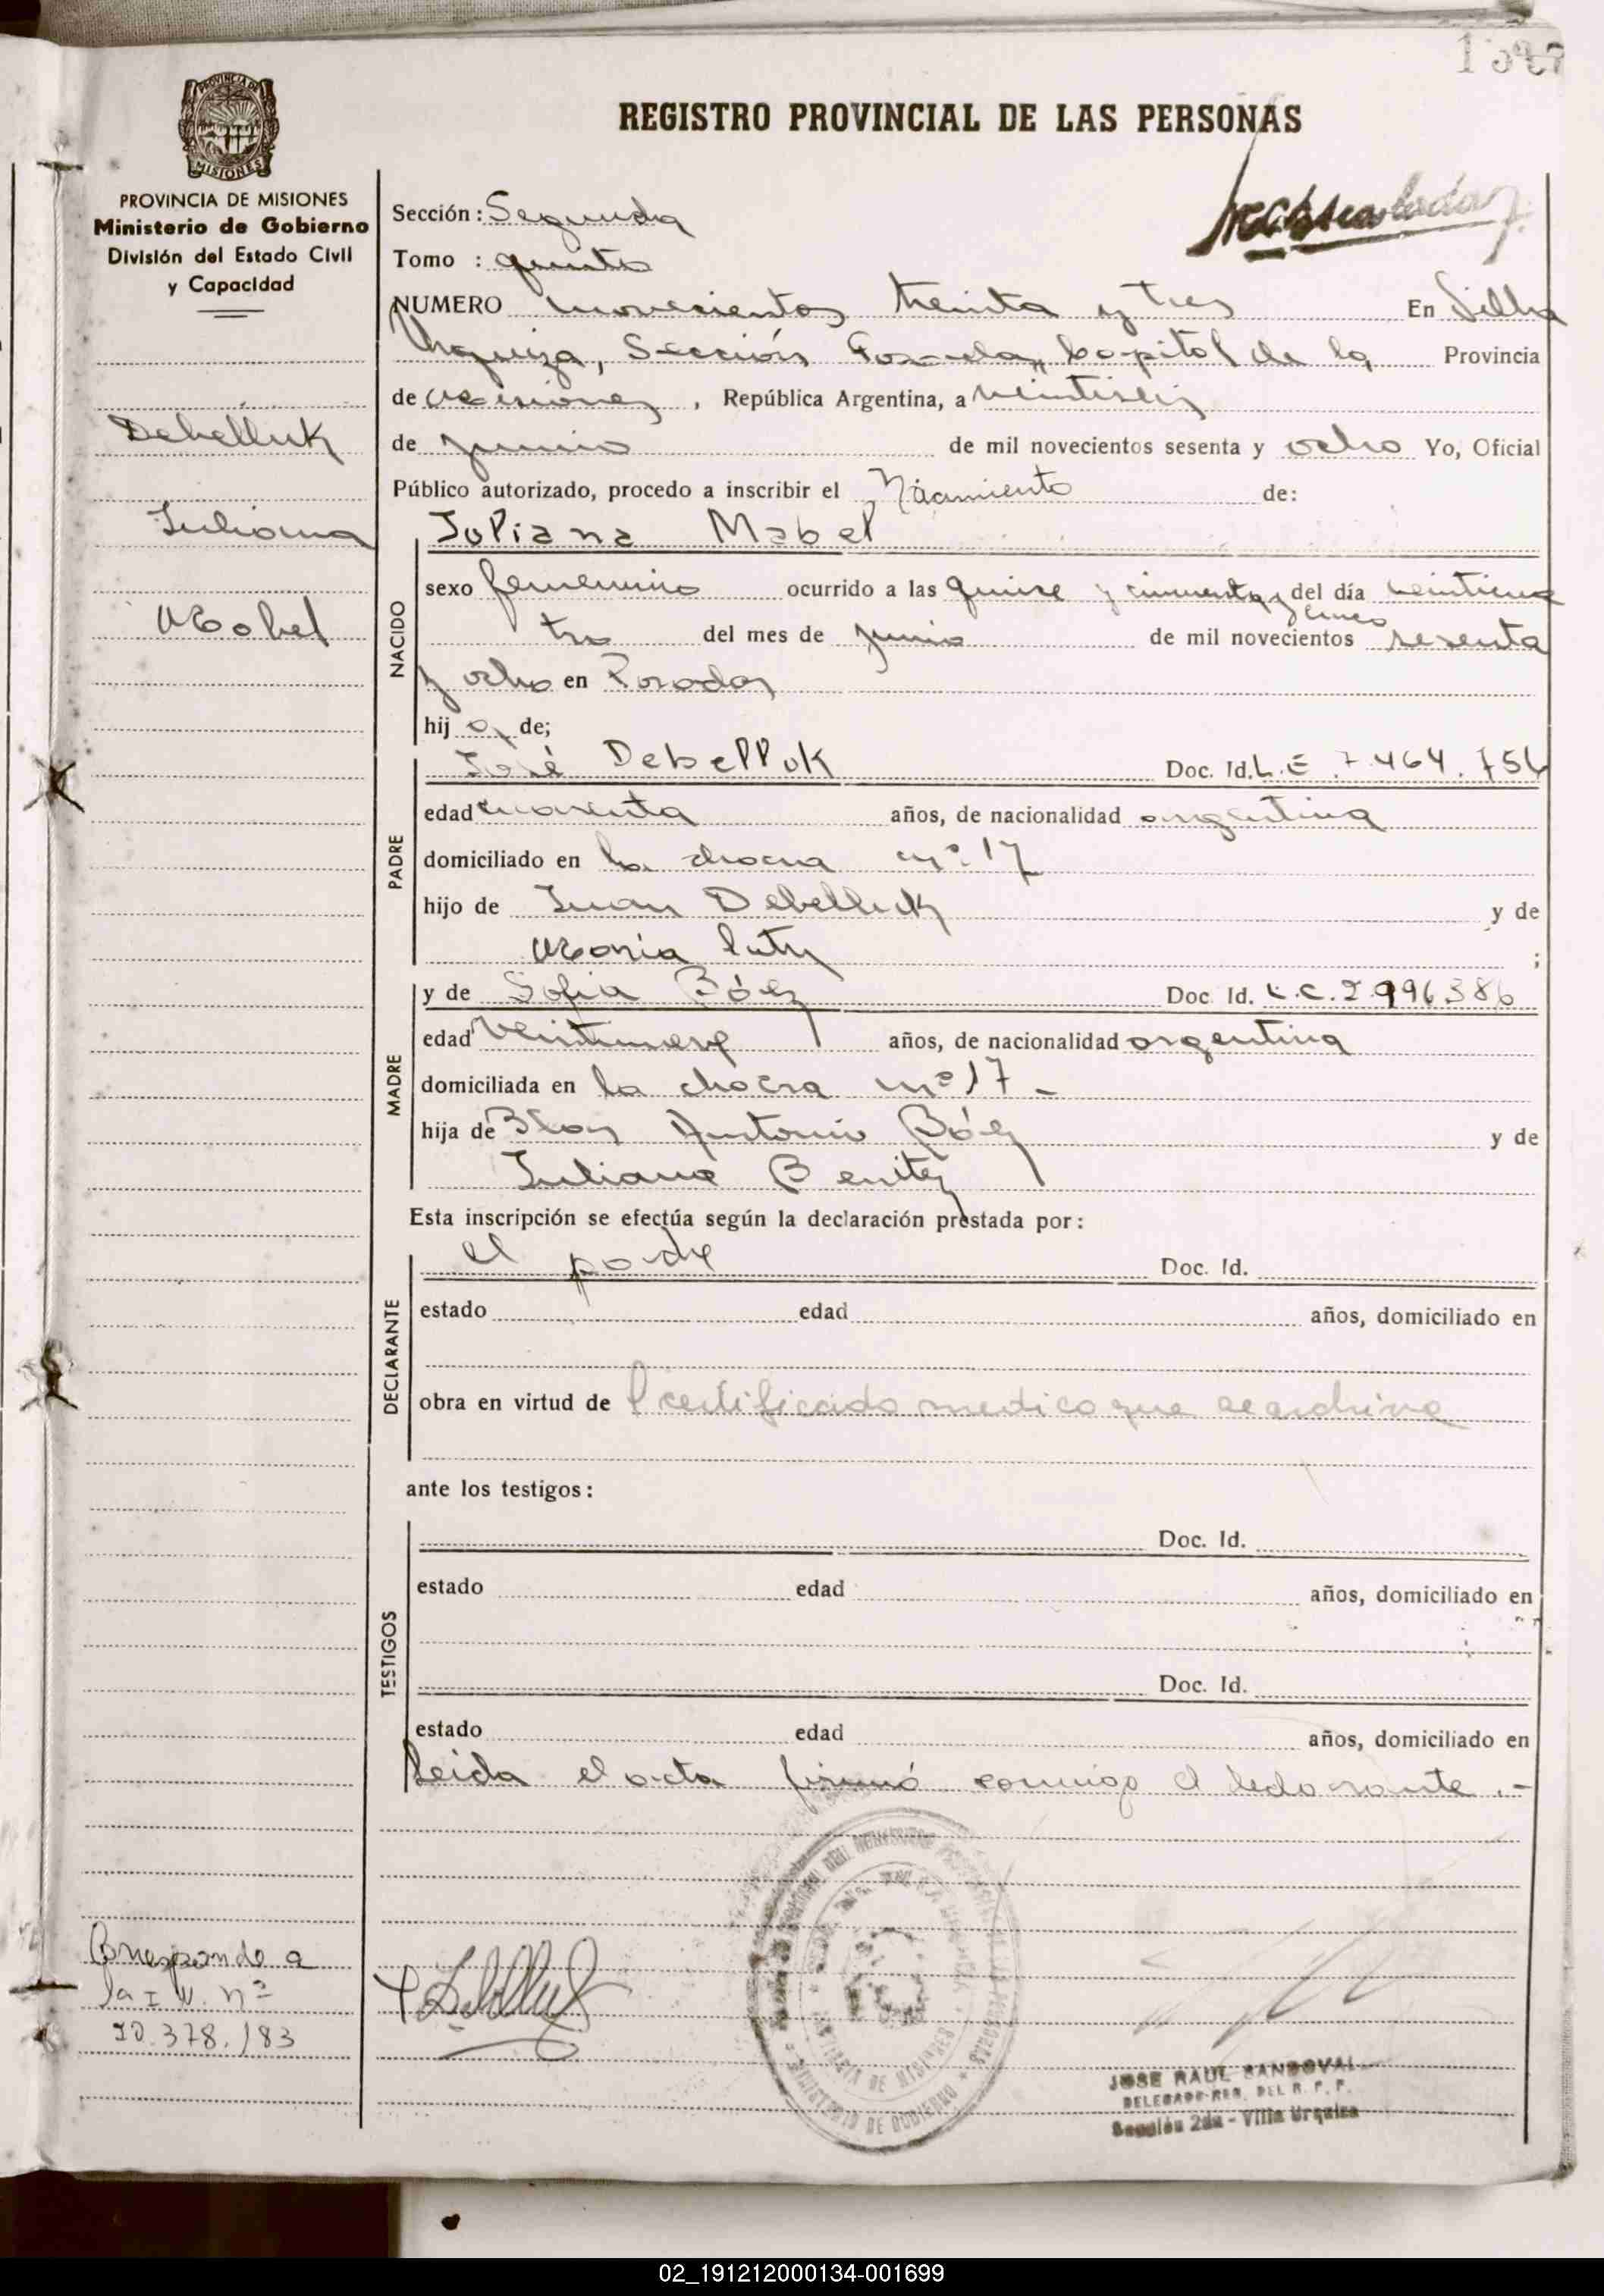 REGISTRO PROVINCIAL DE LAS PERSONAS
PROVINCIA DE MISIONES
Ministerio de Gobierno
División del Estado Civil
y Capacidad
Debelluk
Juliana
Mabel
Sección: Segunda
Tomo : quinto
NUMERO novecientos treinta y tres En Villa
Urquiza, Sección Posadas, Capital de la Provincia
de Misiones, República Argentina, a veintiseis
de junio de mil novecientos sesenta y ocho Yo, Oficial
Público autorizado, procedo a inscribir el Nacimiento de:
Juliana Mabel
NACIDO
sexo femenino ocurrido a las quince y cincuenta y cinco del día veinticua
tro del mes de junio de mil novecientos sesenta
y ocho en Posadas
hij a de;
PADRE
José Debelluk Doc. Id. L.E 7.464.756
edad cuarenta años, de nacionalidad argentina
domiciliado en la chacra nº 17
hijo de Juan Debelluk y de
María ;
MADRE
y de Sofia Báez Doc. Id. L.C.2.996.386
edad veintinueve años, de nacionalidad argentina
domiciliada en la chacra nº 17 -
hija de Blas Antonio Báez y de
Juliana Benitez
Esta inscripción se efectúa según la declaración prestada por:
DECLARANTE
el padre Doc. Id.
estado edad años, domiciliado en
obra en virtud de l certificado medico que se archiva
ante los testigos:
TESTIGOS
Doc. Id.
estado edad años, domiciliado en
Doc. Id.
estado edad años, domiciliado en
Leida el acta firmó conmigo el declarante .-
Corresponde a
la I N. nº
10.378./83
JOSE RAUL SANDOVAL
DELEGADO REG. DEL R. P. P.
Sección 2da - Villa Urquiza
PROVINCIA DE MISIONES
MINISTERIO DE GOBIERNO
02_191212000134-001699